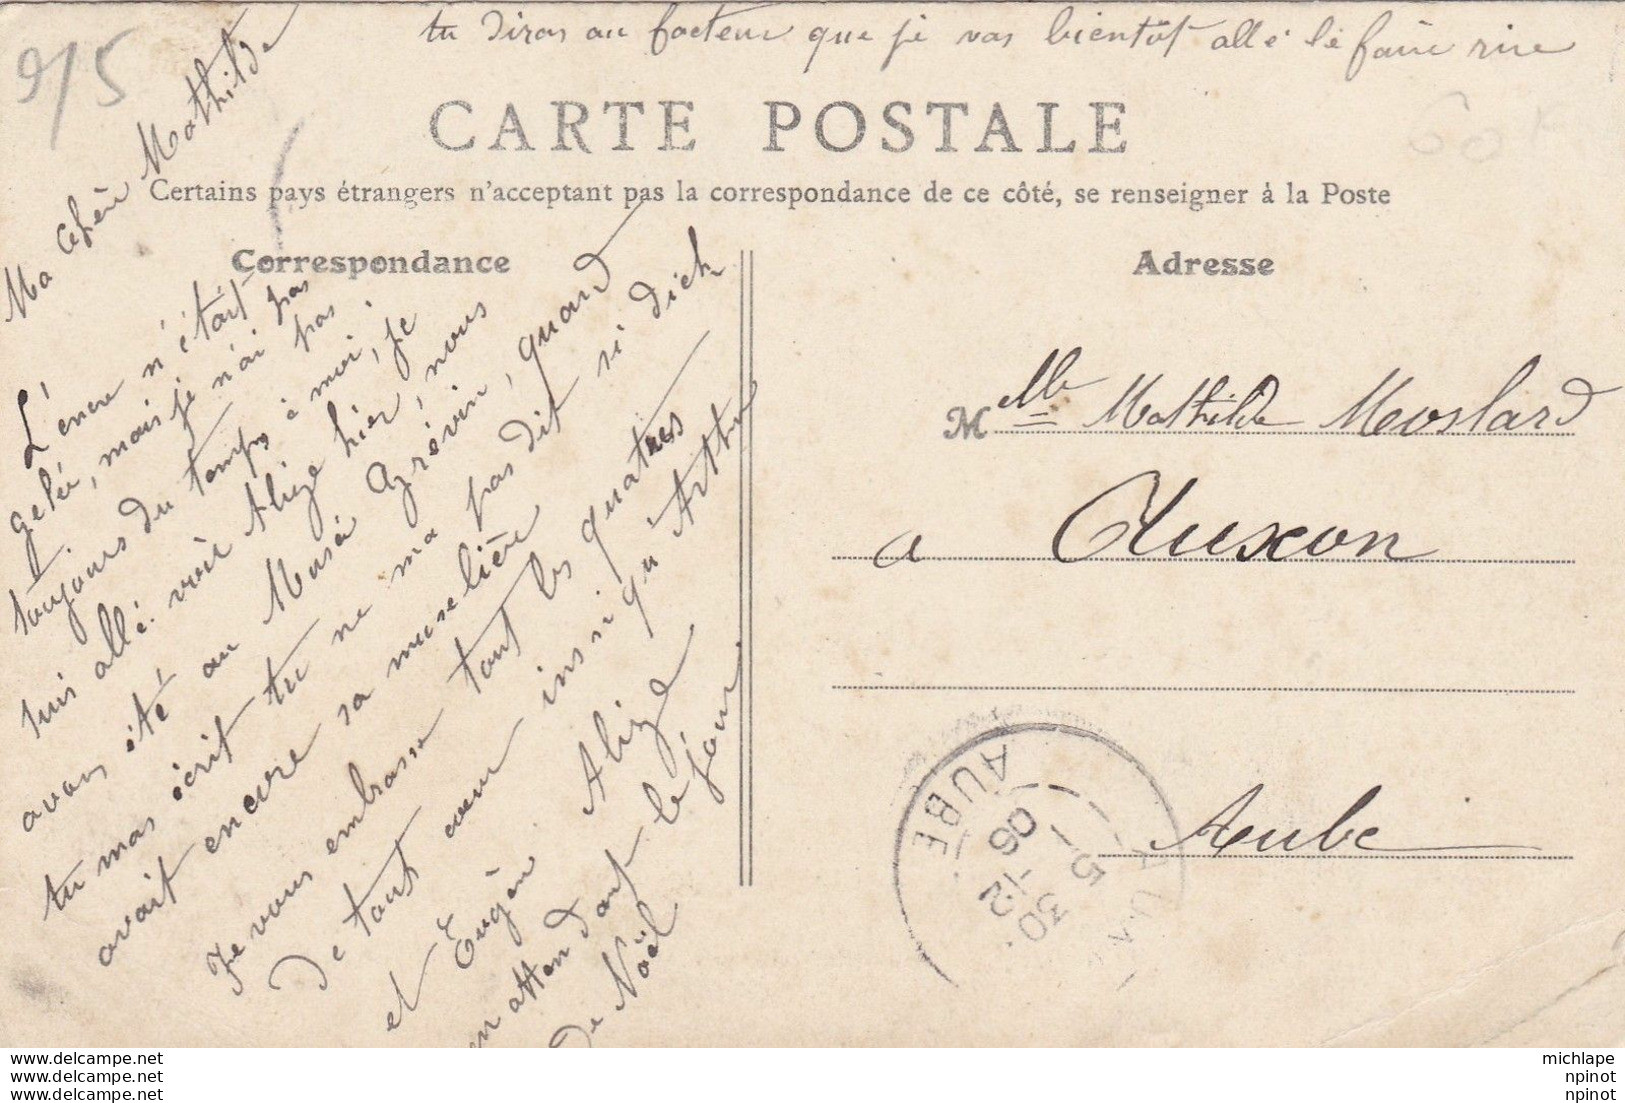 9/5
tu diras au facteur que je vas bientôt allé le faire rire
CARTE POSTALE
Certains pays étrangers n'acceptant pas la correspondance de ce côté, se renseigner à la Poste
Correspondance
Adresse
Ma chèrè Mathilde
L'encre n'était pas
gelée, mais je n'ai pas
toujours du temps à moi, je
suis allé voir Alize hier, nous
avons été au Musée Grévin, quand
tu mas écrit tu ne ma pas dit si dich
avait encore sa muselière
Je vous embrasse tout les quatres
de tout cœur insi qu'Arthur
et Eugène Alize
en attendant le jour
de Noël
Melle Mathilde Moslard
a Auxon
Aube
AUBE
5
30-12
06
michlape
npinot
npinot
www.delcampe.net
www.delcampe.net
www.delcampe.net